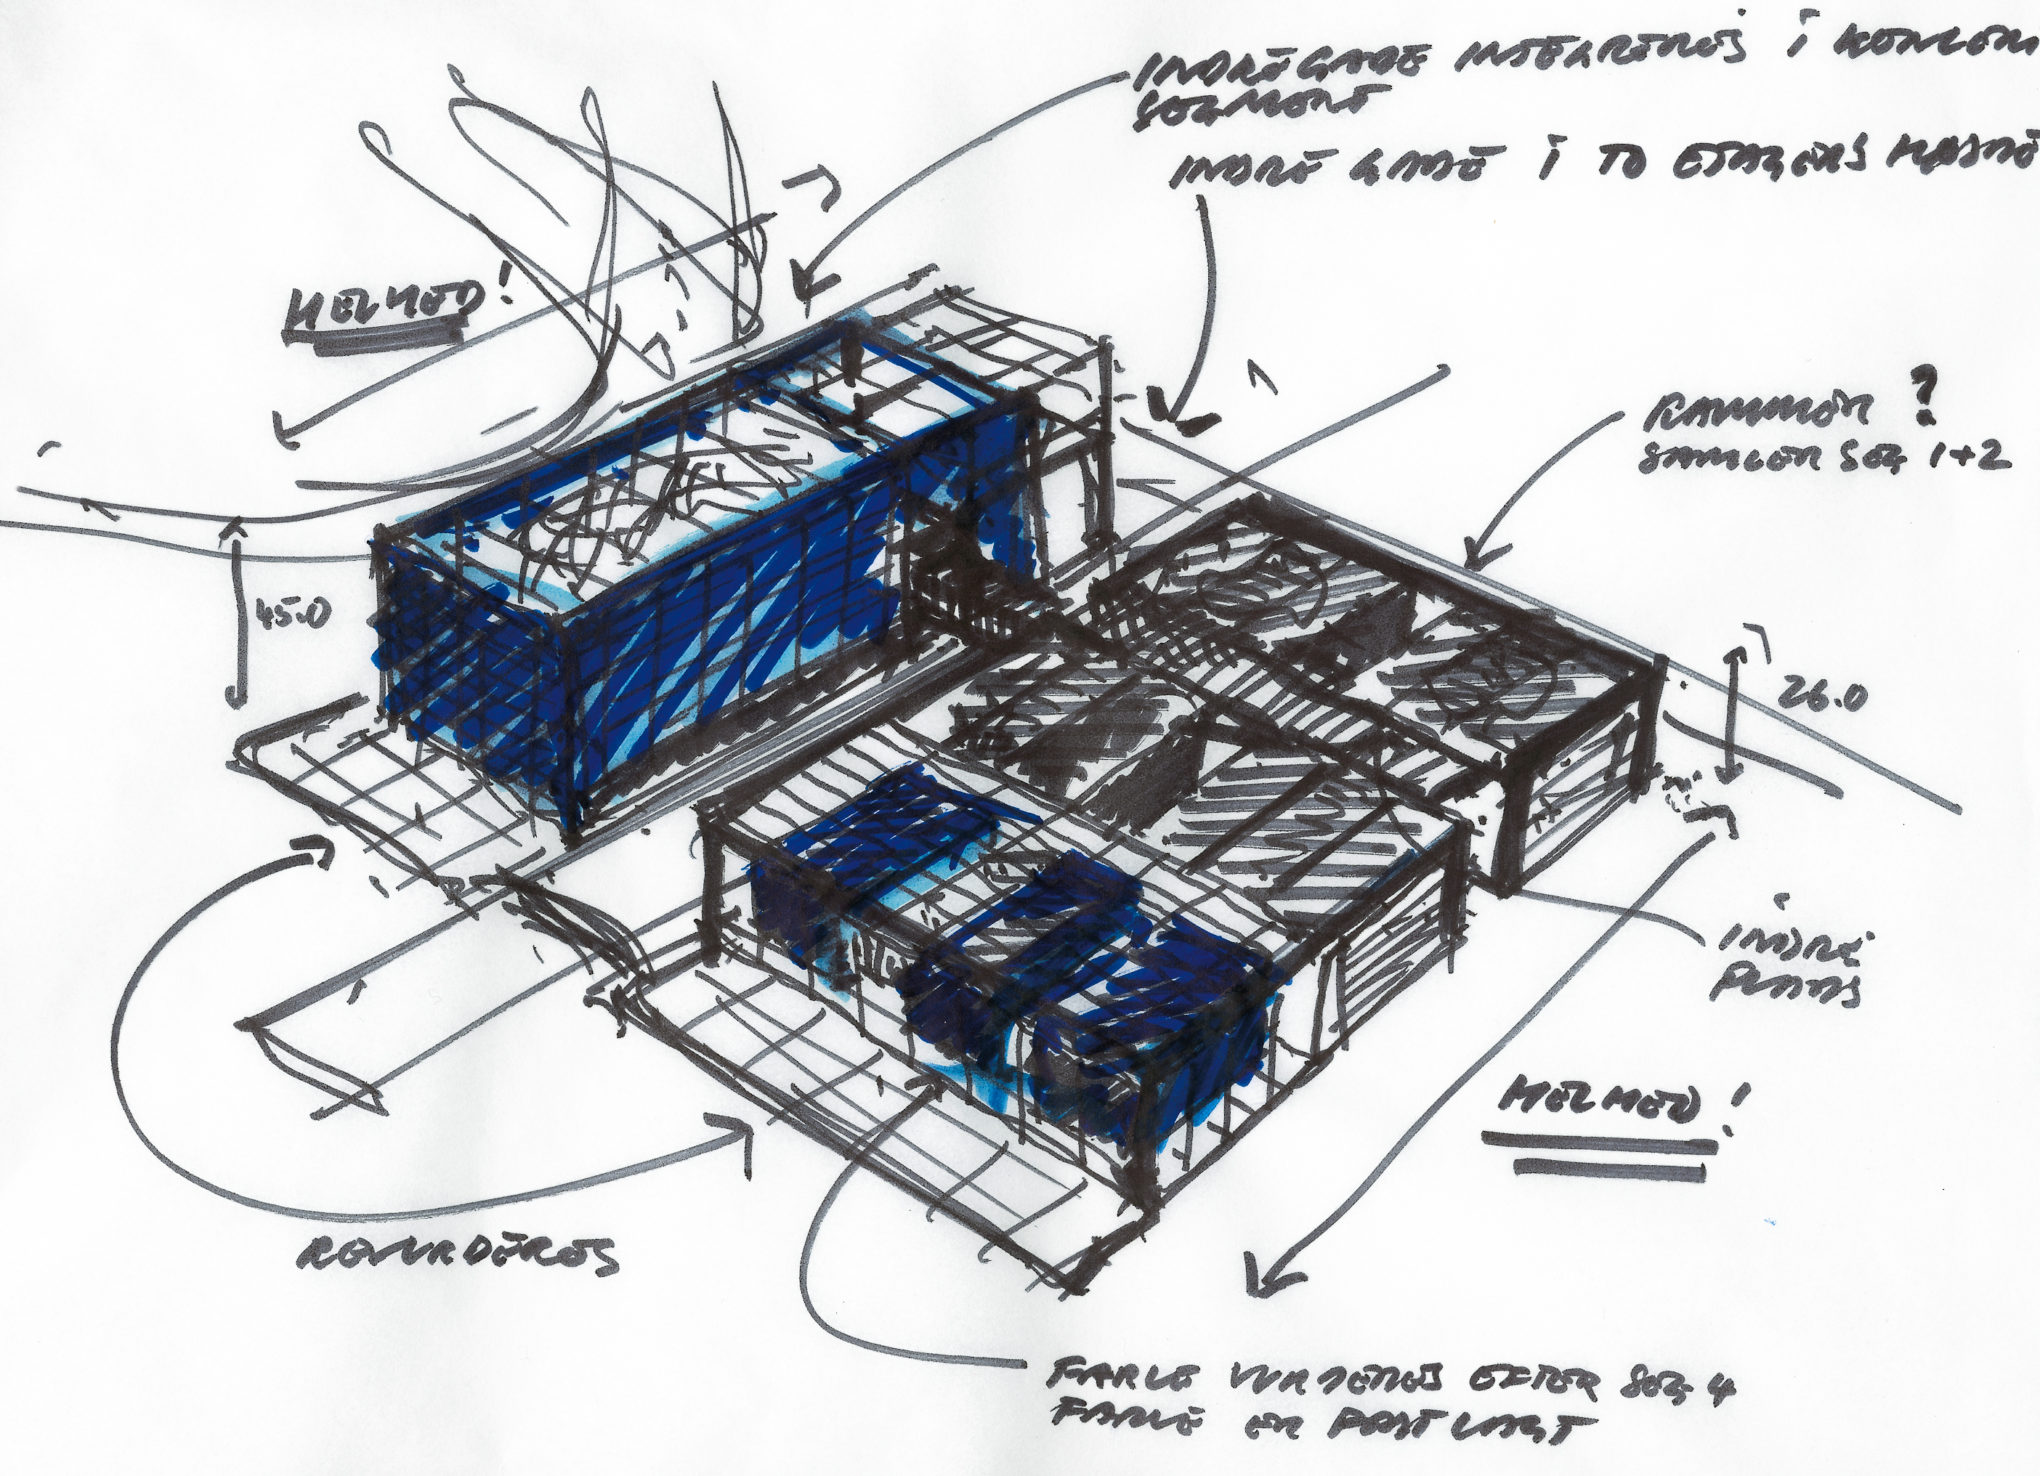 INDRE GADE INTEGRERES I KONCERT
SEGMENT
INDRE GADE I TO ETAGERS HØJDE
HELHED!
RAMMEN?
SAMLER SEG 1+2
45.0
26.0
INDRE
PLADS
HELHED!
REVURDERES
FARVE VURDERES EFTER SEG 4
FARVE ER FASTLAGT